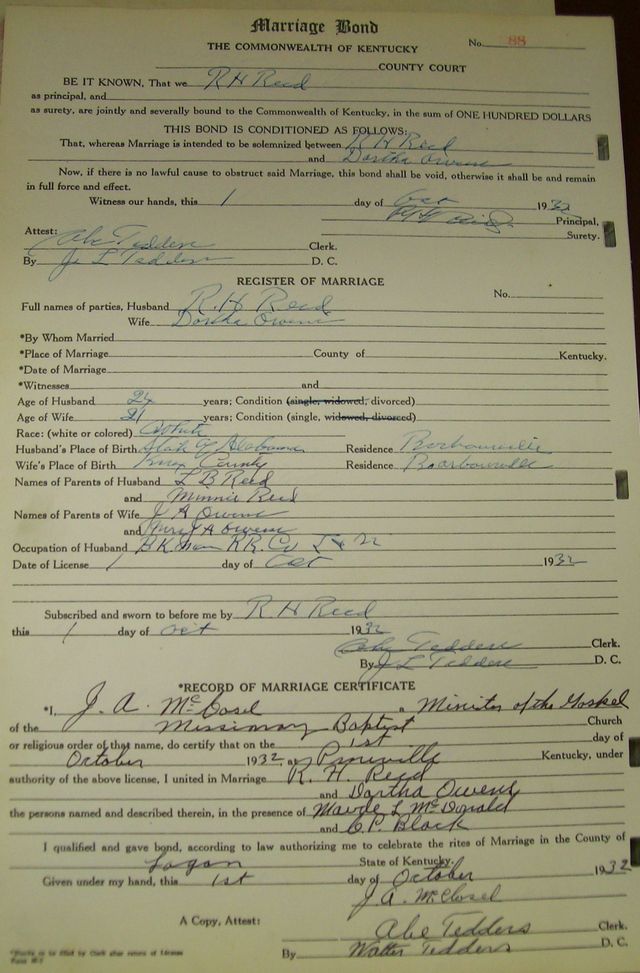 Marriage Bond
No. 88
THE COMMONWEALTH OF KENTUCKY
COUNTY COURT
BE IT KNOWN, That we R H Reed
as principal, and
as surety, are jointly and severally bound to the Commonwealth of Kentucky, in the sum of ONE HUNDRED DOLLARS
THIS BOND IS CONDITIONED AS FOLLOWS:
That, whereas Marriage is intended to be solemnized between R H Reed
and Dortha Owens
Now, if there is no lawful cause to obstruct said Marriage, this bond shall be void, otherwise it shall be and remain
in full force and effect.
Witness our hands, this 1 day of Oct 1932
Principal,
Surety.
Attest:
Abe Tedders Clerk.
By J L Tedders D. C.
REGISTER OF MARRIAGE
No.
Full names of parties, Husband R. H Reed
Wife Dortha Owens
*By Whom Married
*Place of Marriage County of Kentucky.
*Date of Marriage
*Witnesses and
Age of Husband 24 years; Condition (single, widowed, divorced)
Age of Wife 21 years; Condition (single, widowed, divorced)
Race: (white or colored) White
Husband's Place of Birth State of Alabama Residence Barbourville
Wife's Place of Birth Knox County Residence Boarbourville
Names of Parents of Husband L B Reed
and Minnie Reed
Names of Parents of Wife J A Owens
and Mrs J A Owens
Occupation of Husband RR. Co L & N
Date of License 1 day of Oct 1932
Subscribed and sworn to before me by R H Reed
this 1 day of Oct 1932
Abe Tedders Clerk.
By J L Tedders D. C.
*RECORD OF MARRIAGE CERTIFICATE
*I, J. A. a Minister of the Gospel
of the Missionary Baptist Church
or religious order of that name, do certify that on the 1st day of
October 1932, at Pineville Kentucky, under
authority of the above license, I united in Marriage R. H. Reed
and Dortha Owens
the persons named and described therein, in the presence of Maude L McDonald
and C. P. Black
I qualified and gave bond, according to law authorizing me to celebrate the rites of Marriage in the County of
Logan State of Kentucky.
Given under my hand, this 1st day of October 1932
J A
A Copy, Attest: Abe Tedders Clerk.
By Walter Tedders D. C.